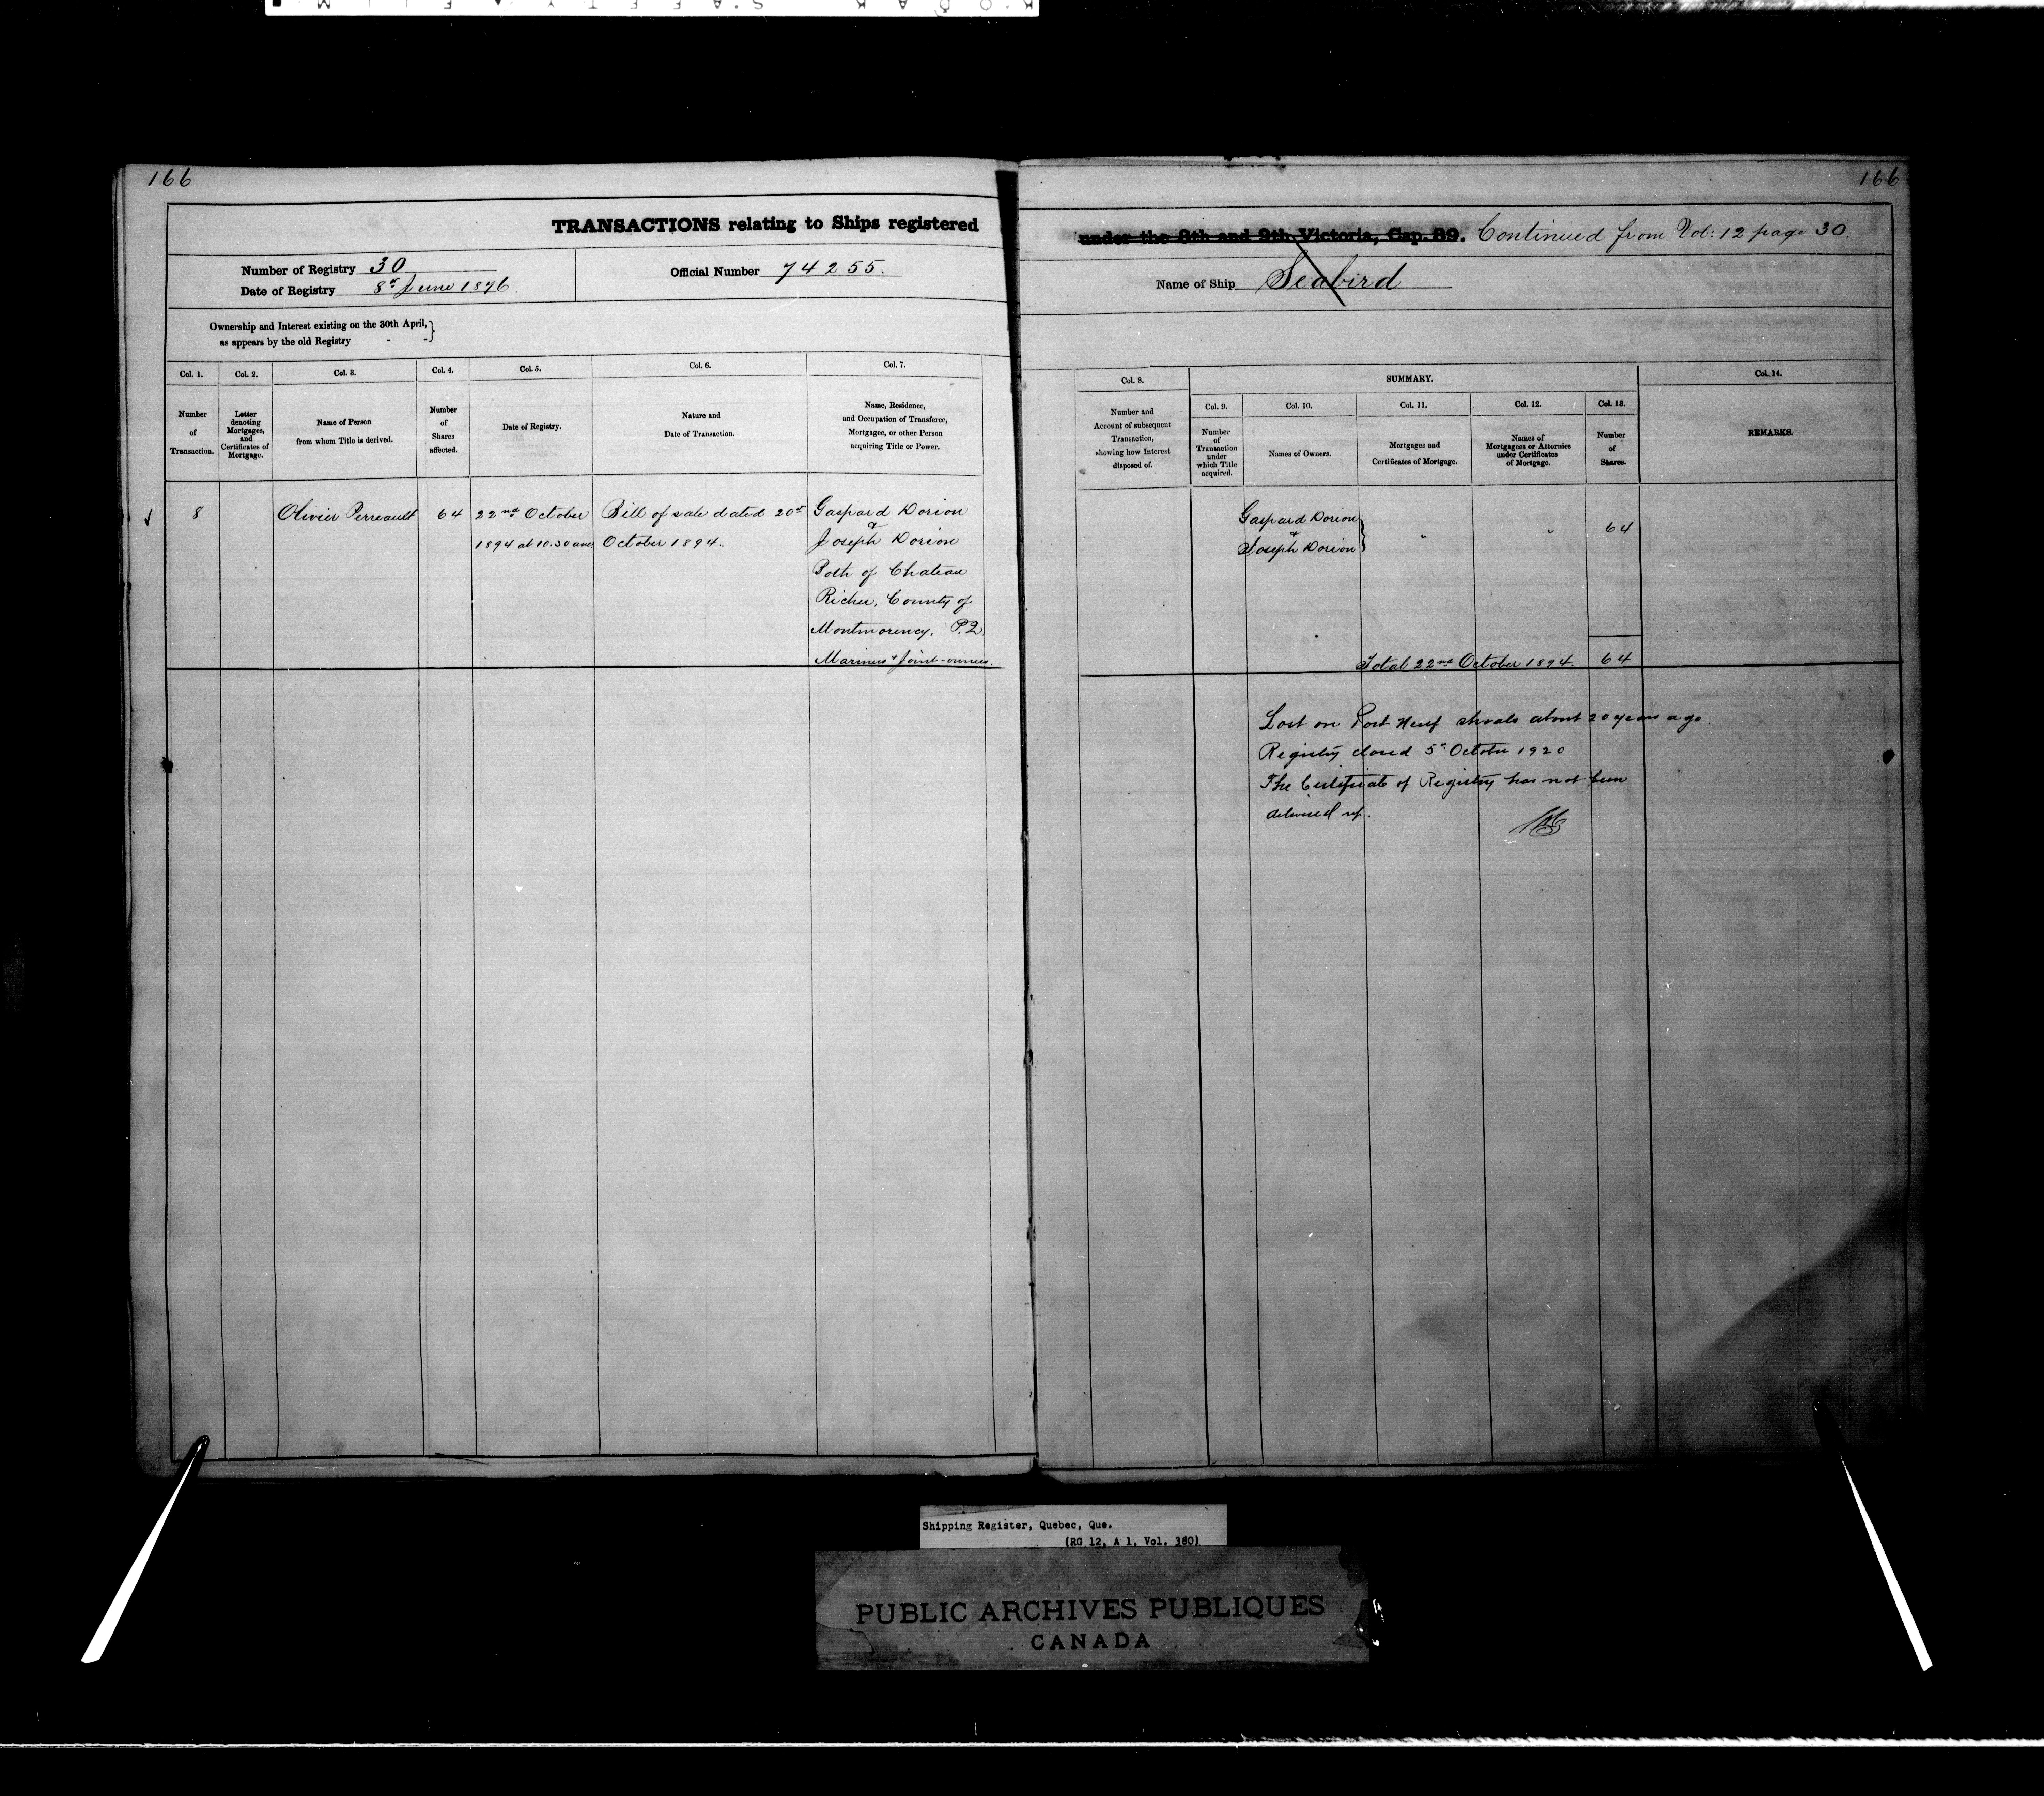 166
166
TRANSACTIONS relating to Ships registered
under the 8th and 9th Victoria, Cap. 89. Continued from Vol: 12 page 30.
Number of Registry 30
Date of Registry 8th June 1876.
Official Number 74255.
Name of Ship Seabird
Ownership and Interest existing on the 30th April,
as appears by the old Registry - -
Col. 1.
Number
of
Transaction.
Col. 2.
Letter
denoting
Mortgages,
and
Certificates of
Mortgage.
Col. 3.
Name of Person
from whom Title is derived.
Col. 4.
Number
of
Shares
affected.
Col. 5.
Date of Registry.
Col. 6.
Nature and
Date of Transaction.
Col. 7.
Name, Residence,
and Occupation of Transferee,
Mortgagee, or other Person
acquiring Title or Power.
Col. 8.
Number and
Account of subsequent
Transaction,
showing how Interest
disposed of.
SUMMARY.
Col. 9.
Number
of
Transaction
under
which Title
acquired.
Col. 10.
Names of Owners.
Col. 11.
Mortgages and
Certificates of Mortgage.
Col. 12.
Names of
Mortgagees or Attornies
under Certificates
of Mortgage.
Col. 13.
Number
of
Shares.
Col. 14.
REMARKS.
8
Olivier Perreault
64
22nd October
1894 at 10.30 am
Bill of sale dated 20th
October 1894.
Gaspard Dorion
&
Joseph Dorion
Both of Chateau
Richer, County of
Montmorency. P.Q.
Mariners & Joint-owners.
Gaspard Dorion
&
Joseph Dorion
"
"
64
Total 22nd October 1894. 64
Lost on Port Neuf shoals about 20 years ago.
Registry closed 5th October 1920
The Certificate of Registry has not been
delivered up.
Shipping Register, Quebec, Que.
(RG 12, A 1, Vol. 380)
PUBLIC ARCHIVES PUBLIQUES
CANADA